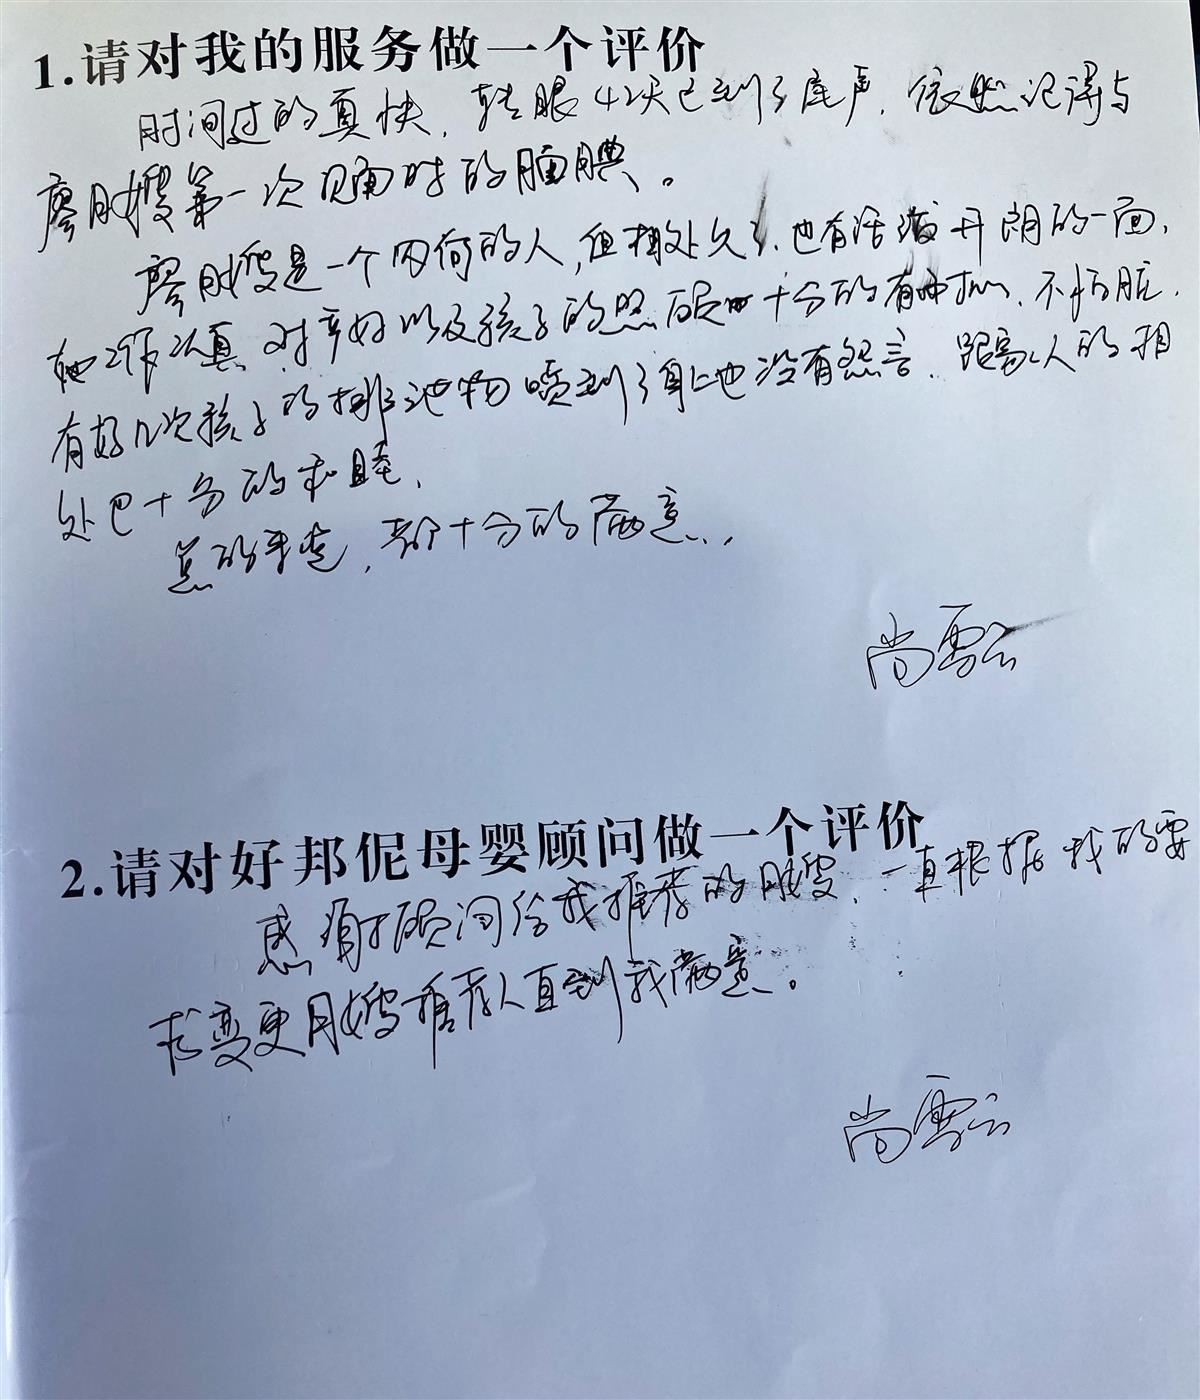 1.请对我的服务做一个评价
时间过的真快，转眼42天已到了尾声，依然记得与
廖月嫂第一次见面时的腼腆。
廖月嫂是一个内向的人，但相处久了，也有活泼开朗的一面，
她工作认真，对产妇以及孩子的照顾十分的有耐心、不怕脏，
有好几次孩子的排泄物喷到了身上也没有怨言，跟家人的相
处也十分的和睦，
总的来说，都十分的满意，
尚雪云
2.请对好邦伲母婴顾问做一个评价
感谢顾问给我推荐的月嫂，一直根据我的要
求变更月嫂推荐人直到我满意。
尚雪云